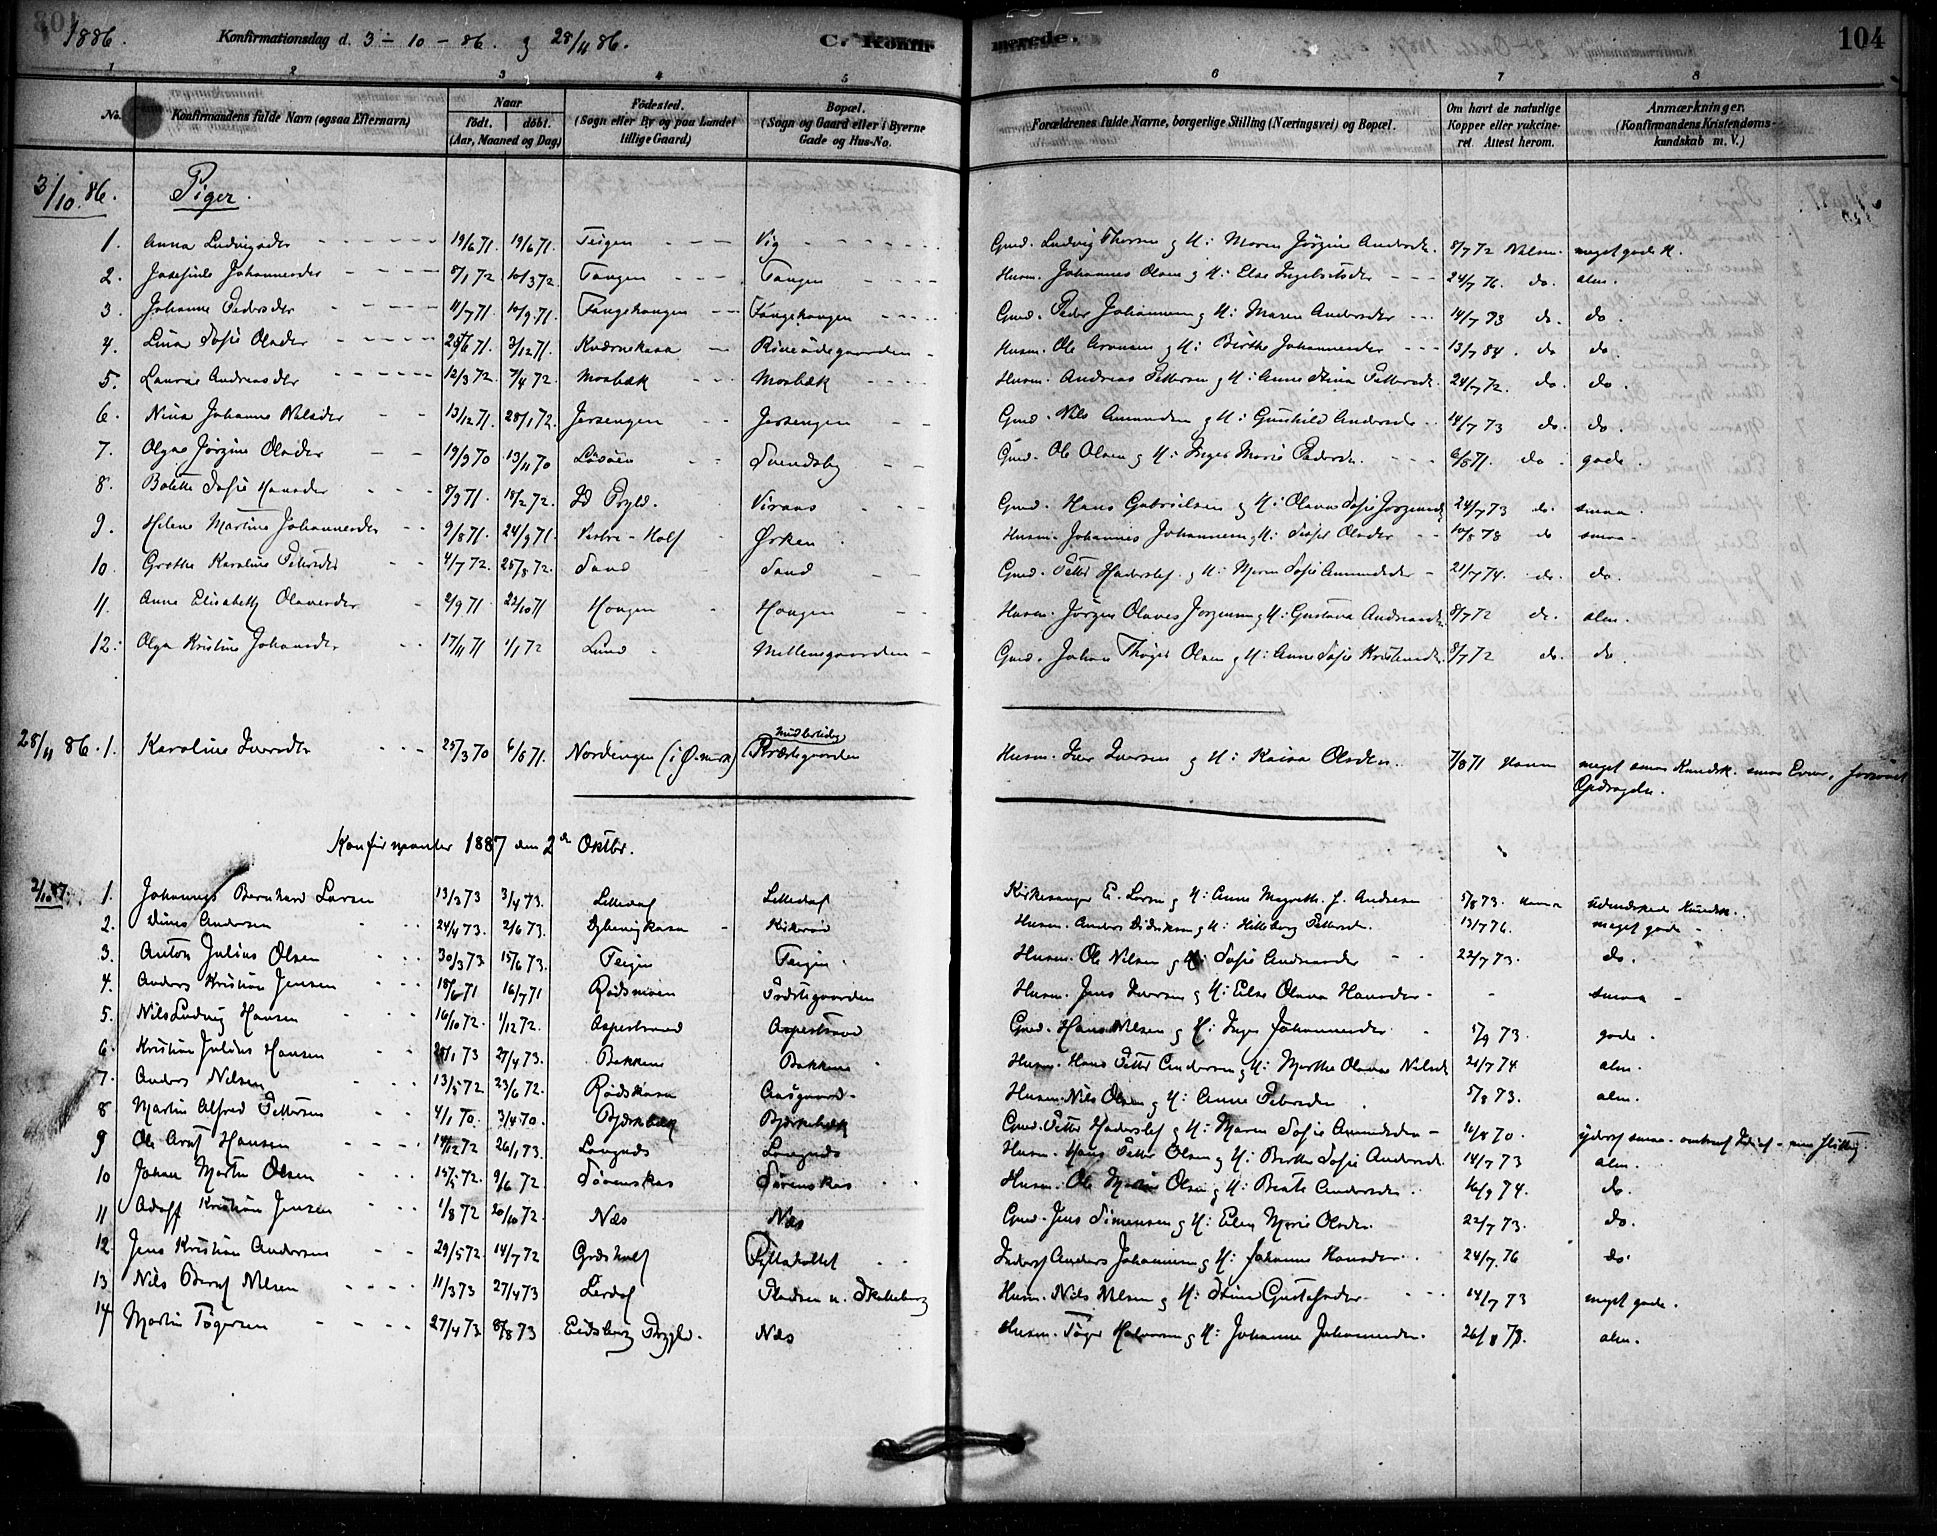 1886. Konfirmationsdag d. 3-10-86. og 28/11 86. C. Konfirmerede. 104
1 2 3 4 5 6 7 8
No. Konfirmandens fulde Navn (ogsaa Efternavn) Naar født. døbt. (Aar, Maaned og Dag) Fødested. (Sogn eller By og paa Landet tillige Gaard) Bopæl. (Sogn og Gaard eller i Byerne Gade og Hus-No. Forældrenes fulde Navne, borgerlige Stilling (Næringsvei) og Bopæl. Om havt de naturlige Kopper eller vakcineret. Attest herom. Anmærkninger. (Konfirmandens Kristendomskundskab m. V.)
3/10 86. Piger.
1. Anna Ludvigsdtr 19/6 71. 19/6 71. Teigen Vig Gmd. Ludvig Thorsen og H: Maren Jørgine Andersdtr. 8/7 72 Nilsen. meget gode K.
2. Josefine Johannesdtr 8/1 72 10/3 72. Tangen Tangen Husm. Johannes Olsen og H: Else Ingebretsdtr 24/7 76. do. alm.
3. Johanne Pedersdtr 11/7 71. 10/9 71. Fangehaugen Fangehaugen Gmd. Peder Johannesen og H: Maren Andersdtr 14/7 73 do. do.
4. Lina Sofie Olsdtr 28/6 71. 3/12 71. Kværnekasa Husm. Ole Aronsen og H: Birthe Johannesdtr 13/7 84. do do.
5. Laura Andreasdtr 12/3 72. 7/4 72. Mosbæk Mosbæk Husm. Andreas Pettersen og H: Anne Stina Pettersdtr. 24/7 72. do. do.
6. Nina Johanne Nilsdtr 13/12 71. 28/1 72. Jarsengen Jarsengen Gmd. Nils Amundsen og H: Gunhild Andersdtr 14/7 73 do. do.
7. Olga Jørgine Olsdtr 19/9 70 13/11 70 Løsøen Svendsby Gmd. Ole Olsen og H: Inger Marie Pedersdtr. 6/8 71. do. gode.
8. Bolette Sofie Hansdtr 8/9 71. 18/2 72. Id Prgld. Viraas Gmd. Hans Gabrielsen og H: Olava Sofie Jørgensdtr 24/7 73 do. smaa
9. Helene Martine Johannesdtr 9/8 71. 24/9 71. Ørken Husm. Johannes Johannesen og H: Sofie Olsdtr 10/8 78 do smaa
10. Grethe Karoline Pettersdtr 4/7 72. 25/8 72. Sand Sand Gmd. Petter Haderslef og H: Maren Sofie Amundsdtr 21/7 74. do. do.
11. Anne Elisabeth Olavesdtr 2/9 71. 22/10 71 Haugen Haugen Husm. Jørgen Olaves Jørgensen og H: Gustava Andreasdtr. 8/7 72 do. alm.
12. Olga Kristine Johansdtr 17/11 71 1/1 72 Lund Mellemgaarden Gmd. Johan Thøger Olsen og H: Anne Sofie Kristensdtr. 8/7 72 do. do.
28/11 86. 1. Karoline Iversdtr 25/3 70 6/8 71. Nordengen (i Ø.mark) midlertidig Prestegaarden Husm. Iver Iversen og H: Kaisa Olsdtr. 7/8 71 Hanna meget smaa Kundsk. smaa Evner, forsømt Opdragelse.
Konfirmanter 1887 den 2den Oktbr.
2/10 87. 1. Johannes Bernhard Larsen 13/3 73 3/4 73. Lilledal Lilledal Kirkesanger E. Larsen og H: Anne Magrethe f. Andresen 5/8 73. Hanna udmærkede Kundsk.
2. Andersen 24/4 73. 2/6 73. Kirkerød Husm. Anders Didriksen og H: Hilleborg Pettersdtr. 13/7 76. meget gode
3. Anton Julius Olsen 30/3 73 15/6 73. Teigen Teigen Husm. Ole Nilsen og H: Sofie Andreasdtr 22/7 73. do.
4. Anders Kristian Jensen 18/6 71 16/7 71 Rødsmoen Prestegaarden Husm. Jens Iversen og H: Else Olava Hansdtr - - smaa
5. Nils Ludvig Hansen 16/10 72. 1/12 72. Aspestrand Aspestrand Gmd. Hans Nilsen og H: Inger Johannesdtr. 5/9 73. gode.
6. Kristian Julius Hansen 28/1 73 27/4 73. Bakkene Bakkene Husm. Hans Petter Andersen og H: Marthe Olava Nilsdtr 21/7 74 alm.
7. Anders Nilsen 13/5 72 23/6 72. Rødskasa Aasgaard Husm. Nils Olsen og H: Anne Pedersdtr 5/8 73. alm.
8 Martin Alfred Pettersen 4/1 70. 3/4 70. Bjørnebæk Bjørnebæk Gmd. Petter Haderslef og H: Maren Sofie Amundsdtr 10/8 70. yderst smaa
9 Ole Hansen 14/12 72 26/1 73. Langnæs Langnæs Husm. Hans Petter Olsen og H: Birthe Sofie Andersdtr. 14/7 73 alm.
10 Johan Martin Olsen 15/5 72. 9/6 72. Sørenskas Sørenskas Husm. Ole Martin Olsen og H: Beate Andersdtr. 16/9 74. do.
11 Adolf Kristian Jensen 1/8 72 20/10 72. Næs Næs Gmd. Jens Simensen og H: Elen Marie Olsdtr. 22/7 73. do.
12. Jens Kristian Andersen 29/5 72. 14/7 72 Græsholt Anders Johannesen og H: Johanne Hansdtr 24/7 76 do.
13 Nils Nilsen 11/3 73 27/4 73 Lerdal Pladsen u. Skolleborg Husm. Nils Nilsen og H: Stina Gustafsdtr 14/7 73 meget gode.
14 Martin Tøgersen 27/4 73. 8/8 73 Eidsberg Prgjld. Næs Husm. Tøger Halvorsen og H: Johanne Johannesdtr. 26/8 73. alm.